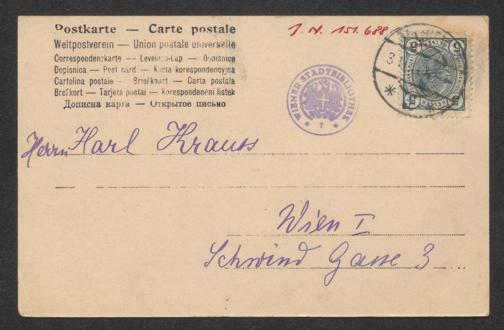 Postkarte — Carte postale
Weltpostverein — Union postale universelle
Correspondenzkarte — Levelező-Lap — Dopisnice
Dopisnica — Post card — Karta korespondencyjna
Cartolina postale — Brefkaart — Carta postala
Brefkort — Tarjeta postal — Korespondenční lístek
Дописна карта — Открытое письмо
I. N. 151.688
WIENER STADTBIBLIOTHEK
5 5
5 5
Herrn Karl Kraus
Wien I
Schwind Gasse 3